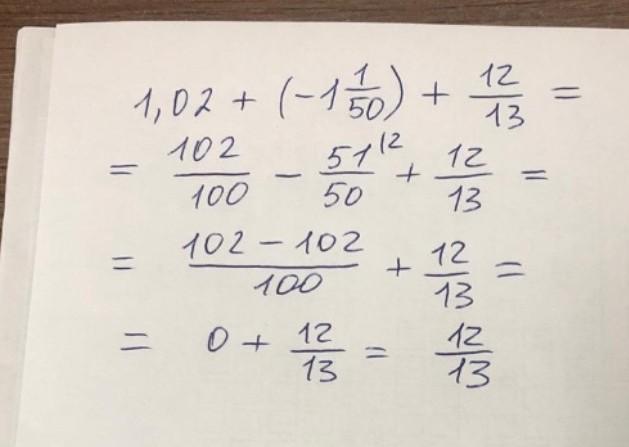 1,02 + (-1 1/50) + 12/13 =
= 102/100 - 51^(2/50 + 12/13 =
= (102 - 102)/100 + 12/13 =
= 0 + 12/13 = 12/13